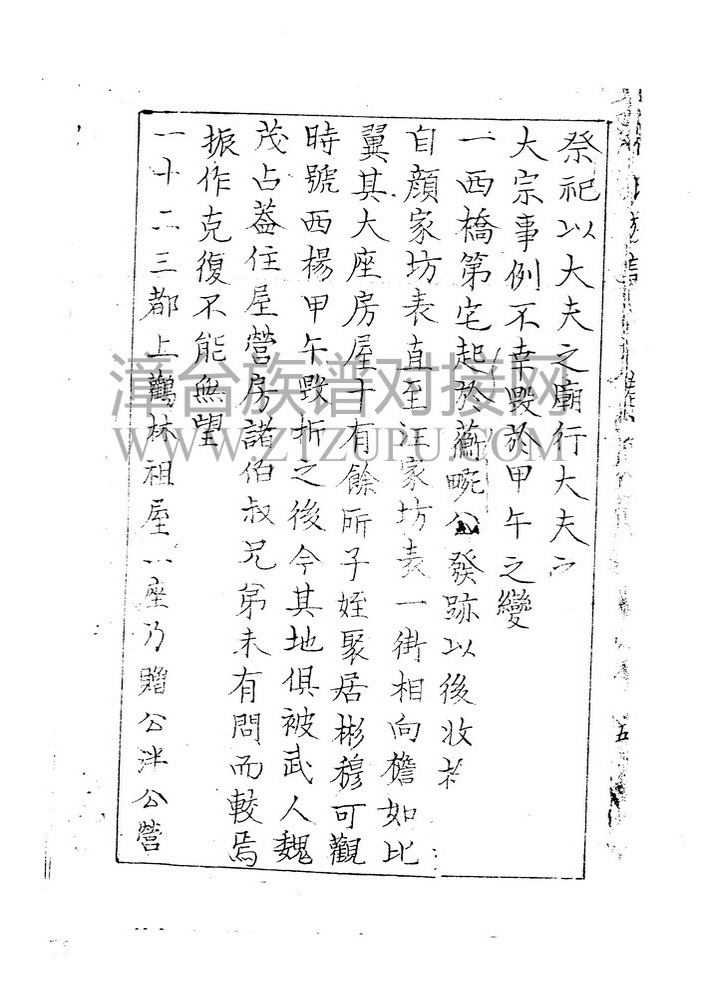 祭祀以大夫之廟行大夫之
大宗事例不幸毀於甲午之變
一西橋第宅起於蘅畹公發跡以後收
自顔家坊表直至汪家坊表一街相向檐如比
翼其大座房屋十有餘所子姪聚居彬穆可觀
時號西楊甲午毀折之後今其地俱被武人魏
茂占蓋住屋營房諸伯叔兄弟未有問而較焉
振作克復不能無望
一十二三都上鶴林祖屋一座乃贈公泮公營
五
漳台族谱对接网
WWW.ZTZUPU.COM